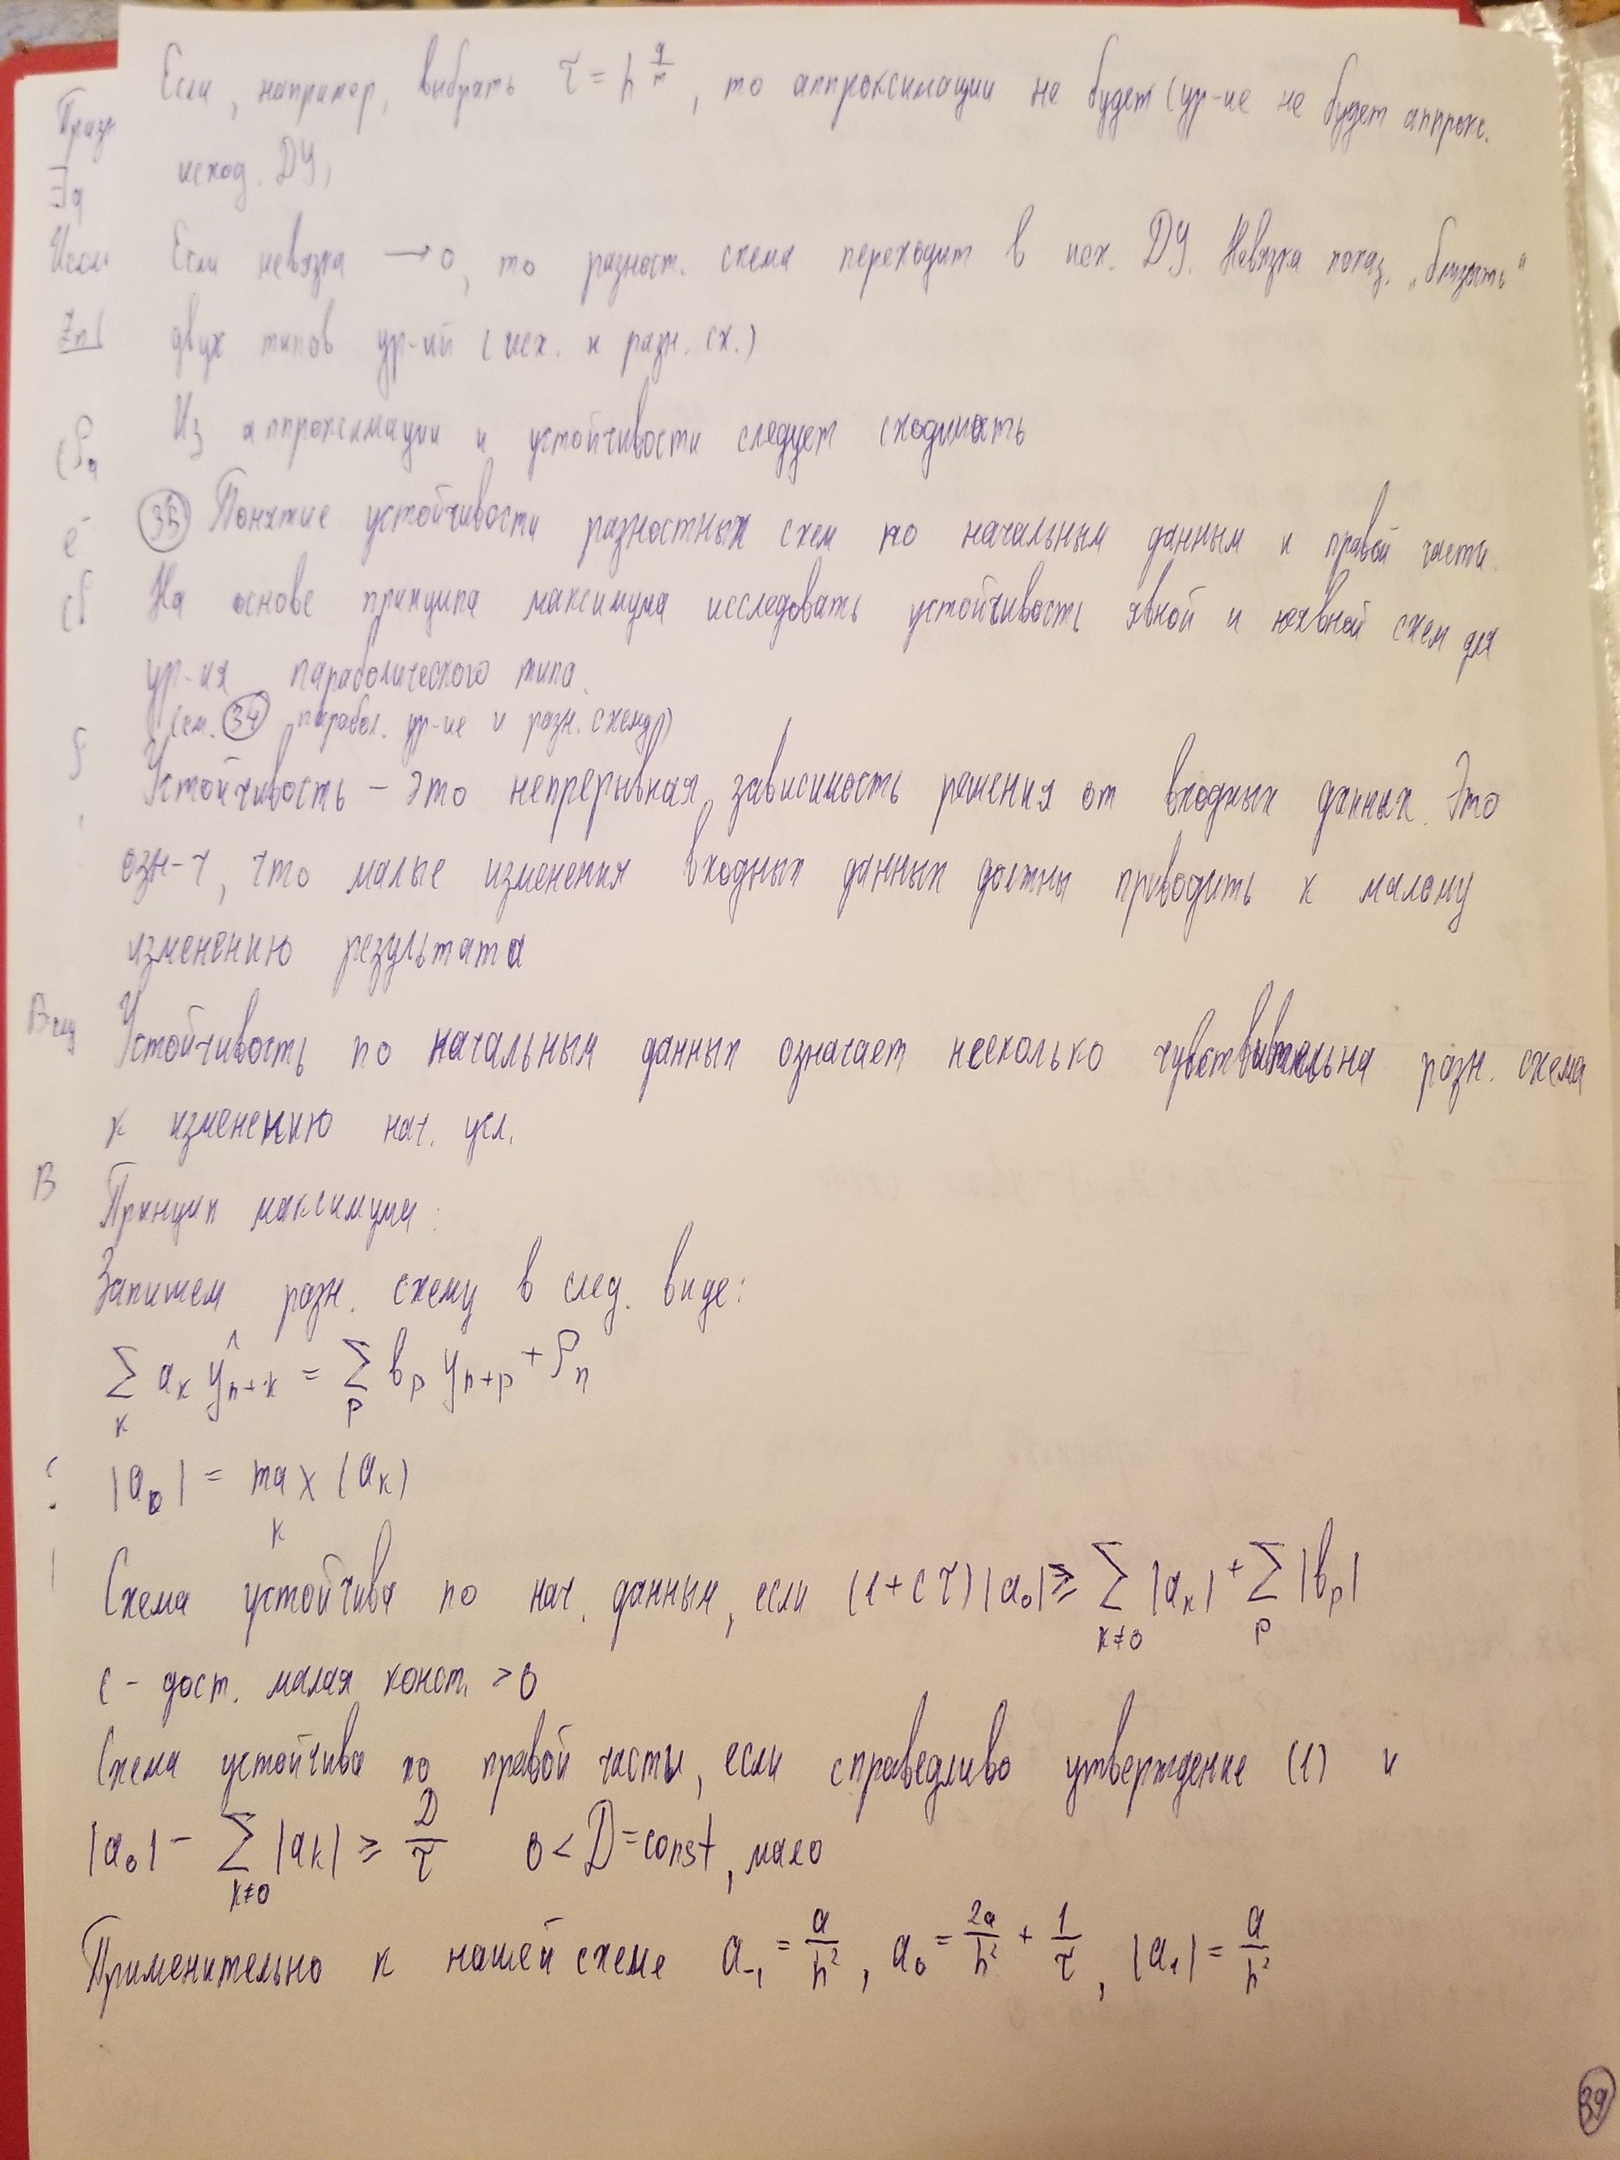 Если, например, выбрать τ = h^(q/m), то аппроксимации не будет (ур-ие не будет аппрокс.
исход. ДУ)
Если невязка → 0, то разност. схема переходит в исх. ДУ. Невязка показ. „близость"
двух типов ур-ий (исх. и разн. сх.)
Из аппроксимации и устойчивости следует сходимость
(35) Понятие устойчивости разностных схем по начальным данным и правой части.
На основе принципа максимума исследовать устойчивость явной и неявной схем для
ур-ия параболического типа.
(см. (34) парабол. ур-ие и разн. схемы)
Устойчивость – это непрерывная зависимость решения от входных данных. Это
озн-т, что малые изменения входных данных должны приводить к малому
изменению результата
Устойчивость по начальным данным означает несколько чувствительна разн. схема
к изменению нач. усл.
Принцип максимума:
Запишем разн. схему в след. виде:
∑_k a_k ŷ_{n+k} = ∑_p b_p y_{n+p} + ρ_n
|a_0| = max_k (a_k)
Схема устойчива по нач. данным, если (1+cτ)|a_0| ≥ ∑_{k≠0} |a_k| + ∑_p |b_p|
c – дост. малая конст. > 0
Схема устойчива по правой части, если справедливо утверждение (1) и
|a_0| – ∑_{k≠0} |a_k| ≥ D/τ 0 < D = const, мало
Применительно к нашей схеме a_{-1} = a/h², a_0 = 2a/h² + 1/τ, |a_1| = a/h²
39